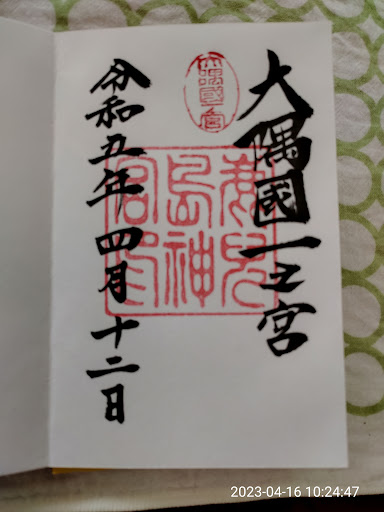 大隅國一之宮
鹿兒
島神
宮印
令和五年四月十二日
2023-04-16 10:24:47